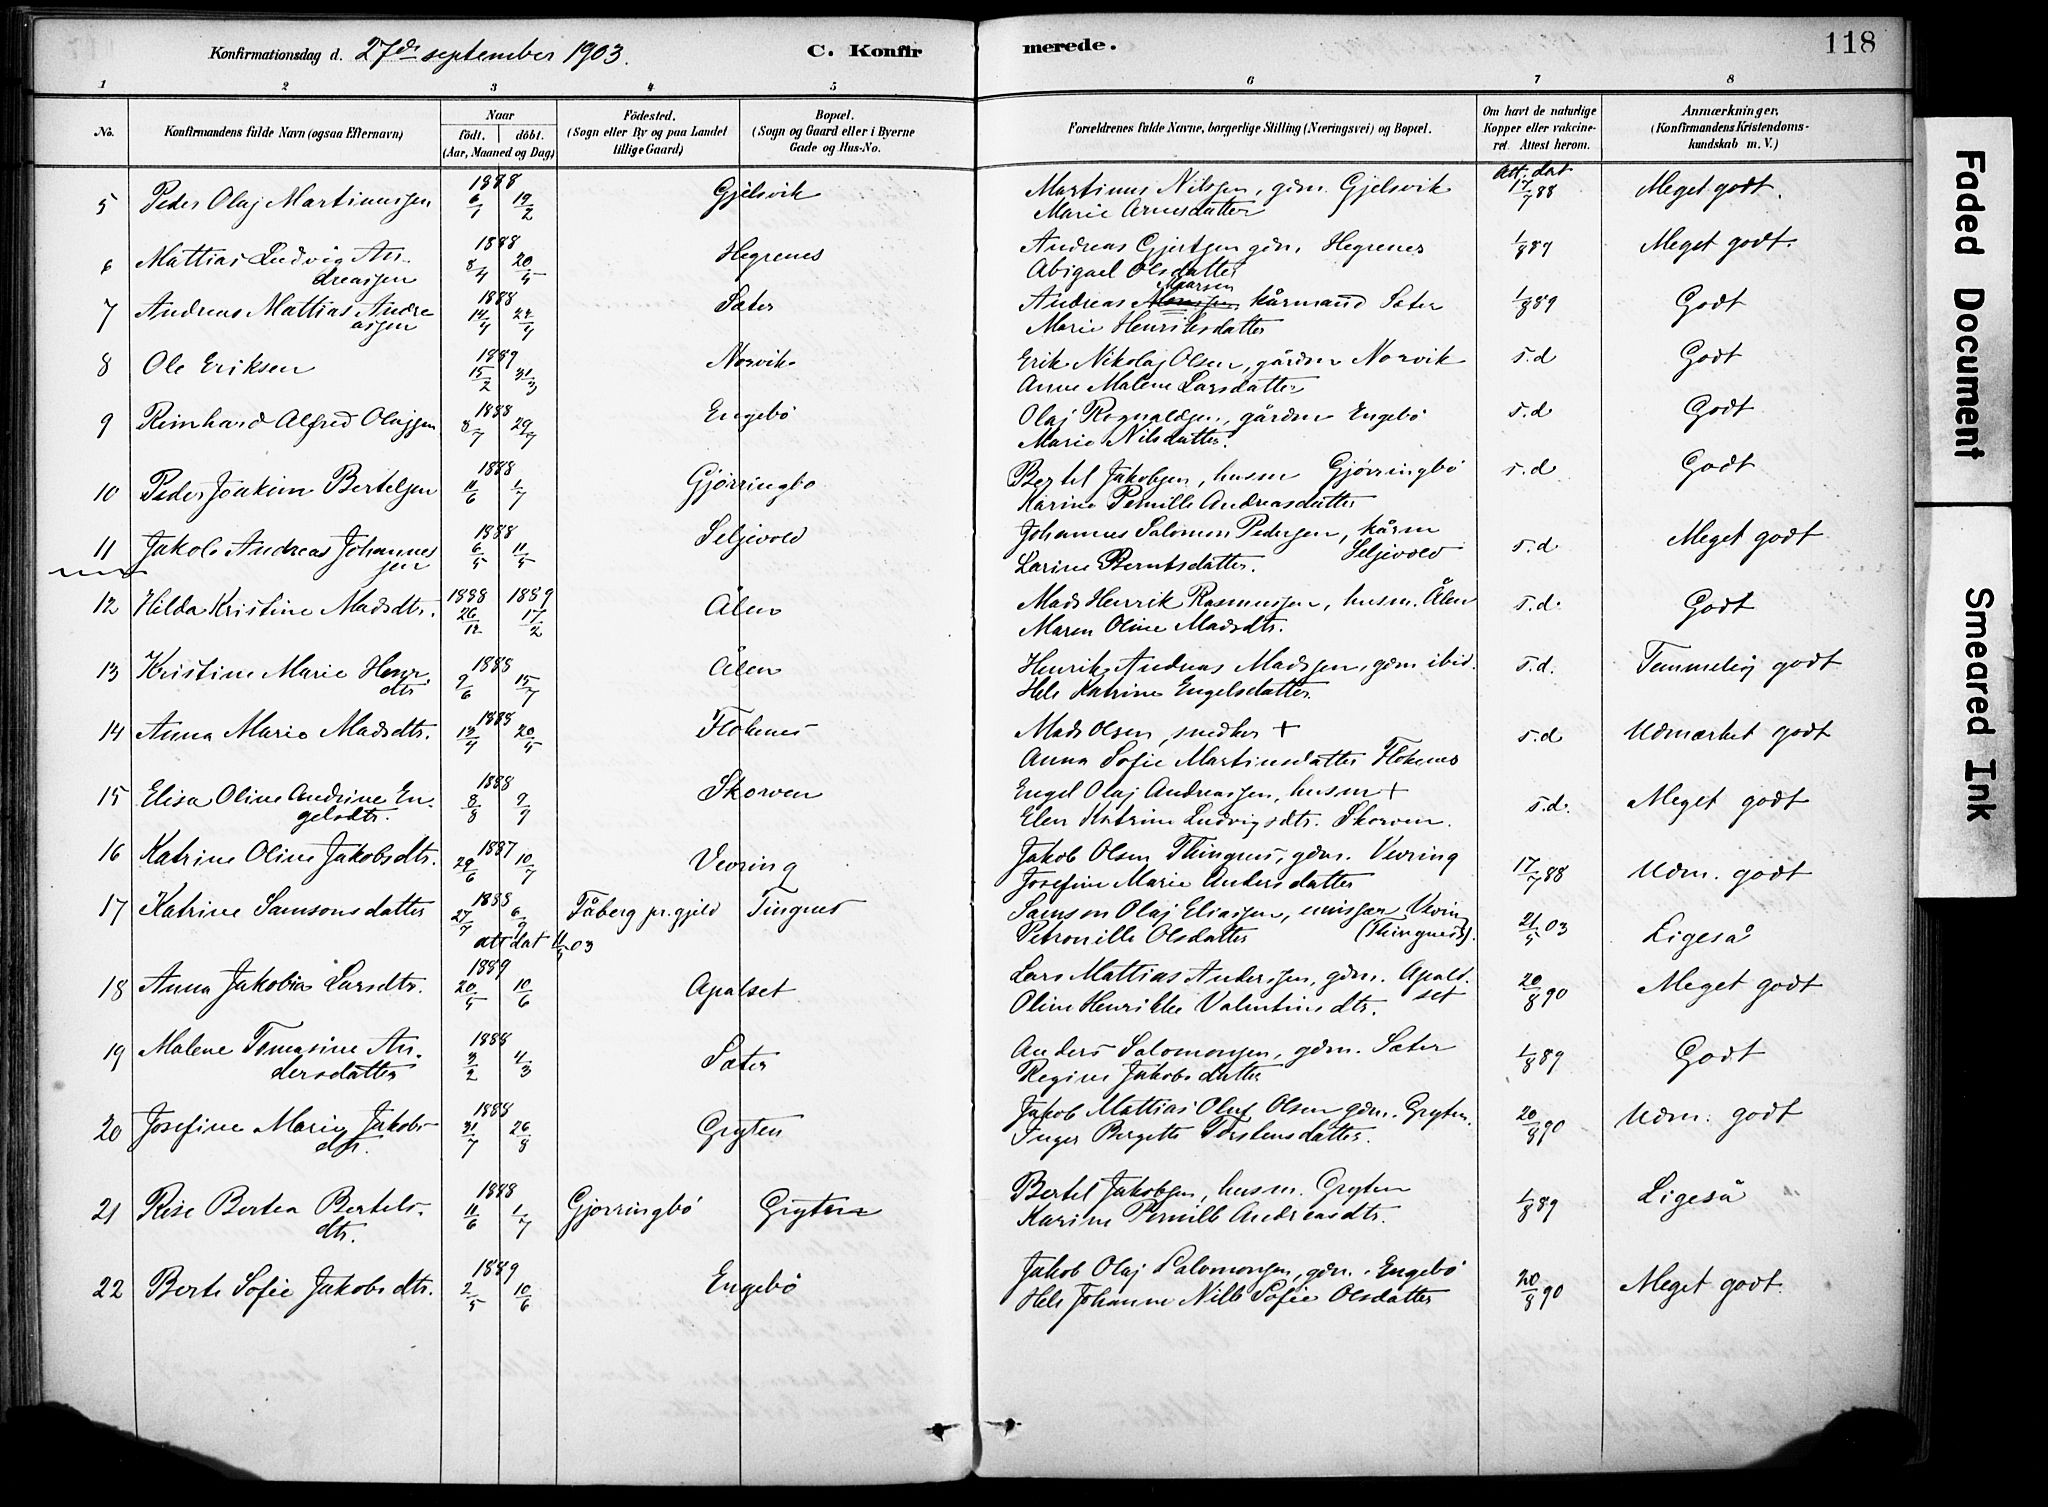 Konfirmationsdag d. 27de september 1903. C. Konfirmerede. 118
1 2 3 4 5 6 7 8
No. Konfirmandens fulde Navn (ogsaa Efternavn) Naar födt. döbt. (Aar, Maaned og Dag) Födested. (Sogn eller By og paa Landet tillige Gaard) Bopæl. (Sogn og Gaard eller i Byerne Gade og Hus-No. Forældrenes fulde Navne, borgerlige Stilling (Næringsvei) og Bopæl. Om havt de naturlige Kopper eller vakcineret. Attest herom. Anmærkninger. (Konfirmandens Kristendomskundskab m. V.)
5 Peder Olaj Martinussen 1888 6/1 19/2 Gjelsvik Martinus Nilssen, gdm. Gjelsvik att. dat 17/7 88 Meget godt.
Marie Arnesdatter
6 Mattias Ludvig An- 1888 8/4 20/5 Hegrenes Andreas Gjertsen gdm. Hegrenes 1/8 89 Meget godt.
dreassen Abigael Olsdatter
7 Andreas Mattias Andre 1888 14/4 22/4 Sæter Andreas Maarsen kårmand Sæter 1/8 89 Godt
assen Marie Henriksdatter
8 Ole Eriksen 1889 15/2 31/3 Norvik Erik Nikolaj Olsen, gårdm Norvik s.d Godt
Anne Malene Larsdatter
9 Reinhard Alfred Olajsen 1888 8/7 29/7 Engebö Olaj Rognaldsen, gårdm Engebö s.d Godt
Marie Nilsdatter.
10 Peder Joakim Bertelsen 1888 11/6 1/7 Gjörringbö Bertel Jakobsen, husm Gjörringbö s.d Godt
Karine Pernille Andreasdatter
11 Jakob Andreas Johannes 1888 6/5 11/5 Seljevold Johannes Salomon Pedersen, kårm s.d Meget godt
sen Larine Berntsdatter. Seljevold
12 Hilda Kristine Madsdtr. 1888 26/12 1889 17/2 Ålen Mads Henrik Rasmussen, husm. Ålen s.d. Godt
Maren Oline Madsdtr.
13 Kristine Marie Henr. 1888 9/6 15/7 Ålen Henrik Andreas Madssen, gdm ibid. s.d. Temmelig godt
dtr Hele Katrine Engelsdatter.
14 Anna Marie Madsdtr. 1888 13/4 20/5 Flokenes Mads Olsen, snedker + s.d Udmærket godt
Anna Sofie Martinsdatter Flokenes
15 Elisa Oline Andrine En- 1888 8/8 9/9 Skorven Engel Olaj Andreassen, husm + s.d. Meget godt
gelsdtr. Elen Katrine Ludvigsdtr. Skorven.
16 Katrine Oline Jakobsdtr. 1887 29/6 10/7 Vevring Jakob Olsen Thingnes, gdm. Vevring 17/7 88 Udm. godt
Josefine Marie Andersdatter
17 Katrine Samsonsdatter 1888 27/7 6/9 Fåberg pr.gjeld Tingnes Samson Olaj Eliassen, emissær Vevring 21/5 03 Ligeså
att dat 11/5 03 Petronille Olsdatter (Thingnes).
18 Anna Jakobia Larsdtr. 1889 20/5 10/6 Apalset Lars Mattias Anderssen, gdm. Apalset 20/8 90 Meget godt
Oline Henrikke Valentinsdtr.
19 Malene Tomasine An- 1888 3/2 4/3 Sæter Anders Salomonsen, gdm. Sæter 1/8 89 Godt
dersdatter Regine Jakobsdatter
20 Josefine Marie Jakobs- 1888 31/7 26/8 Gryten Jakob Mattias Oluf Olsen gdm. Gryten. 20/8 90 Udm. godt
dtr. Inger Bergette Torstensdatter.
21 Rise Bertea Bertels- 1888 11/6 1/7 Gjörringbö Gryten Bertel Jakobsen, husm. Gryten 1/8 89 Ligeså
dtr. Karine Pernille Andreasdtr.
22 Berte Sofie Jakobsdtr. 1889 2/5 10/6 Engebö Jakob Olaj Salomonsen, gdm. Engebö 20/8 90 Meget godt.
Hele Johanne Nille Sofie Olsdatter
Faded Document
Smeared Ink